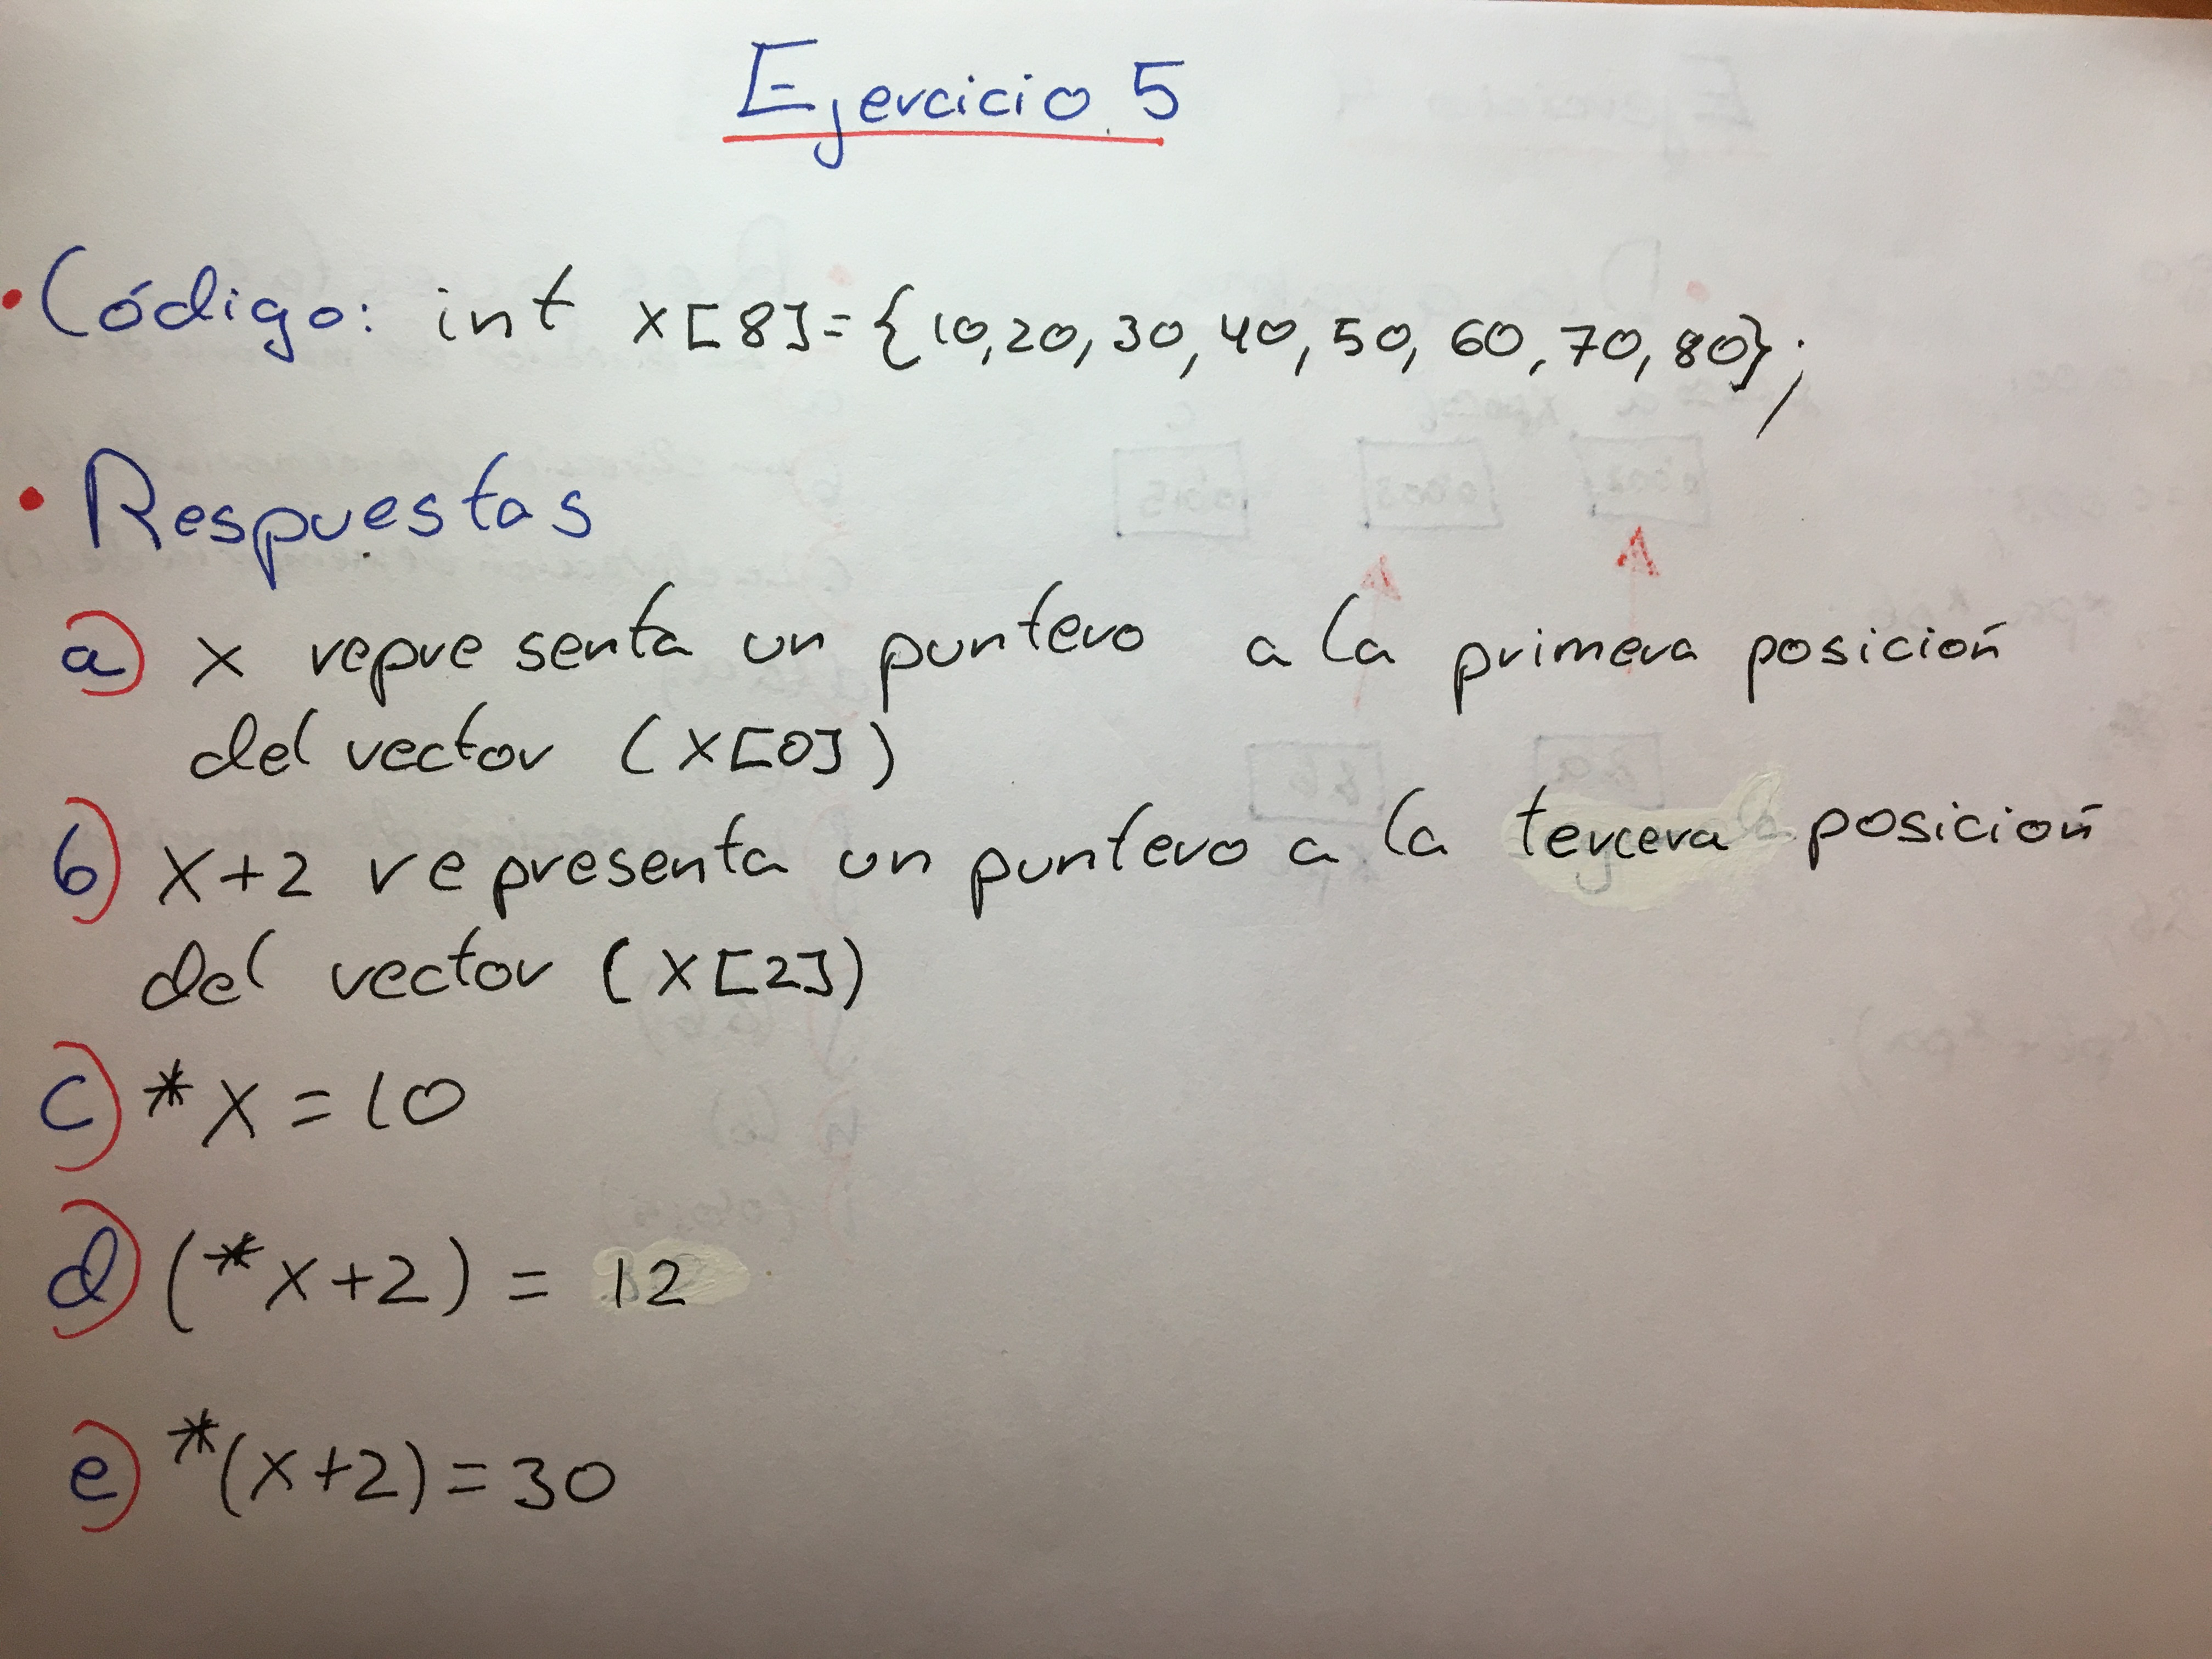 Ejercicio 5
• Código: int x[8]={10,20,30,40,50,60,70,80};
• Respuestas
a) x representa un puntero a la primera posición
del vector (x[0])
b) x+2 representa un puntero a la tercera posición
del vector (x[2])
c) *x=10
d) (*x+2) = 12
e) *(x+2)=30